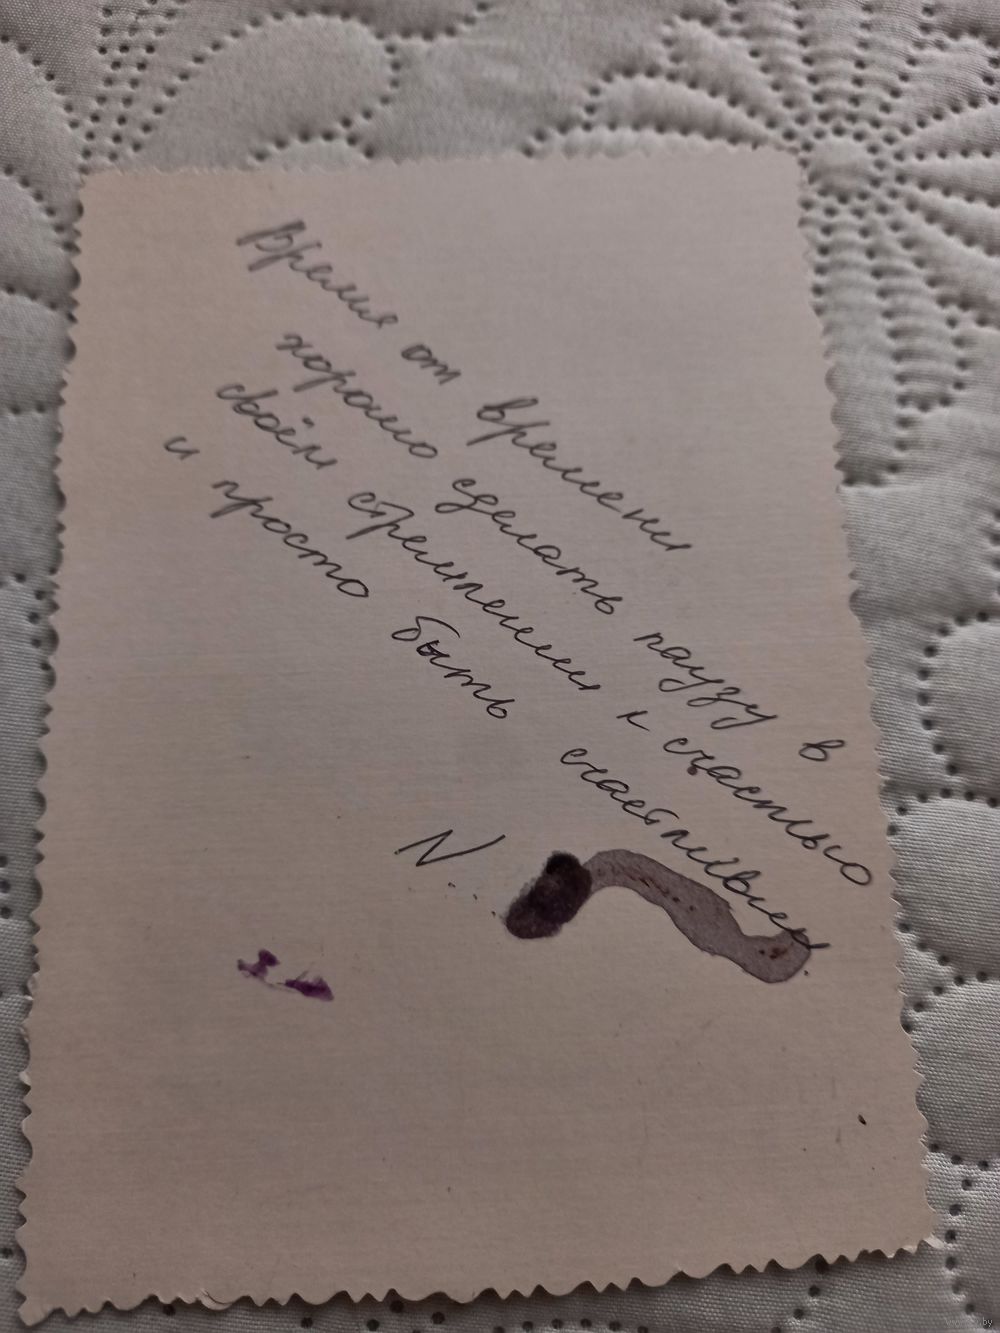 Время от времени
хорошо сделать паузу в
своём стремлении к счастью
и просто быть счастливым
N.